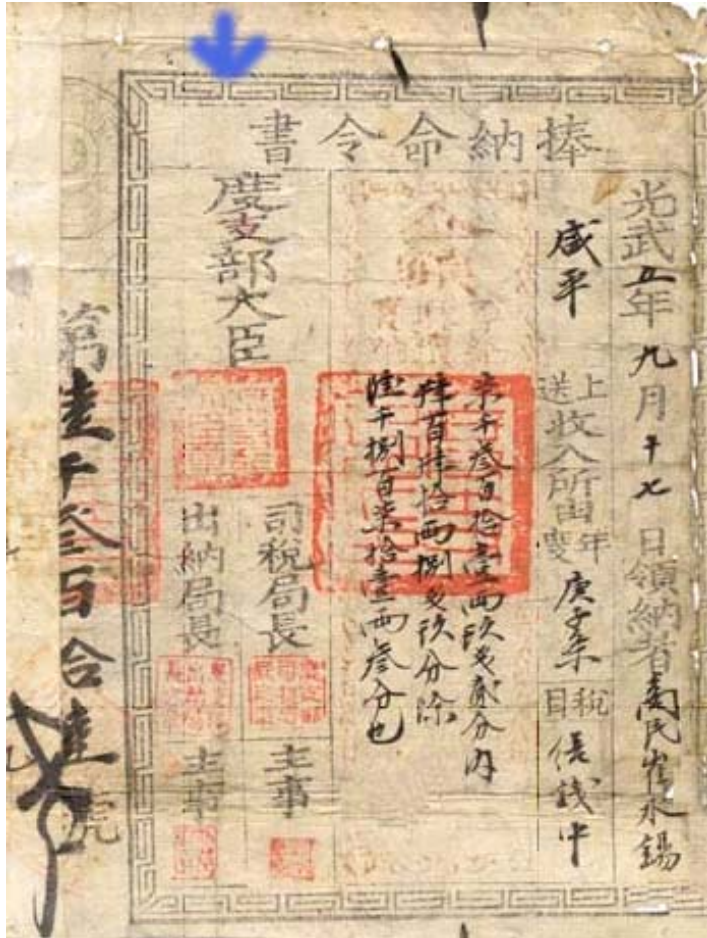 捧納命令書
光武五年九月十七日領納者商民崔永錫
咸平上送收入所由年度庚子条税目結錢中
柒千參百拾壹兩玖戔貳分內
肆百肆拾兩捌戔玖分除
陸千捌百柒拾壹兩參分也
度支部大臣
司稅局長主事
出納局長主事
第壹千叁百拾壹號